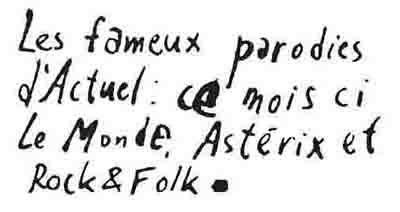 Les fameux parodies
d'Actuel : ce mois ci
Le Monde, Astérix et
Rock & Folk.